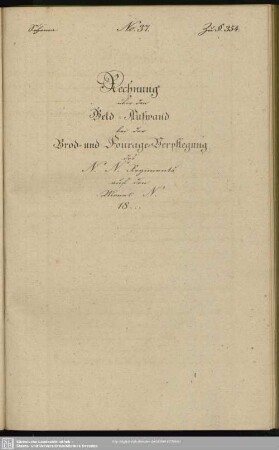 Schema No. 37. Zu § 354.
Rechnung
über den
Geld-Aufwand
bei der
Brod- und Fourage-Verpflegung
des
N. N. Regiments
auf den
Monat N.
18...